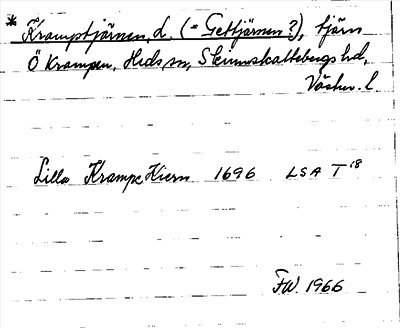 * Kramptjärnen, L. (= Gettjärnen?), tjärn
Ö Krampen, Heds sn, Skinnskattebergs hd,
Västm. l
Lilla Krampe Kiern 1696 LSA T 18
FW. 1966